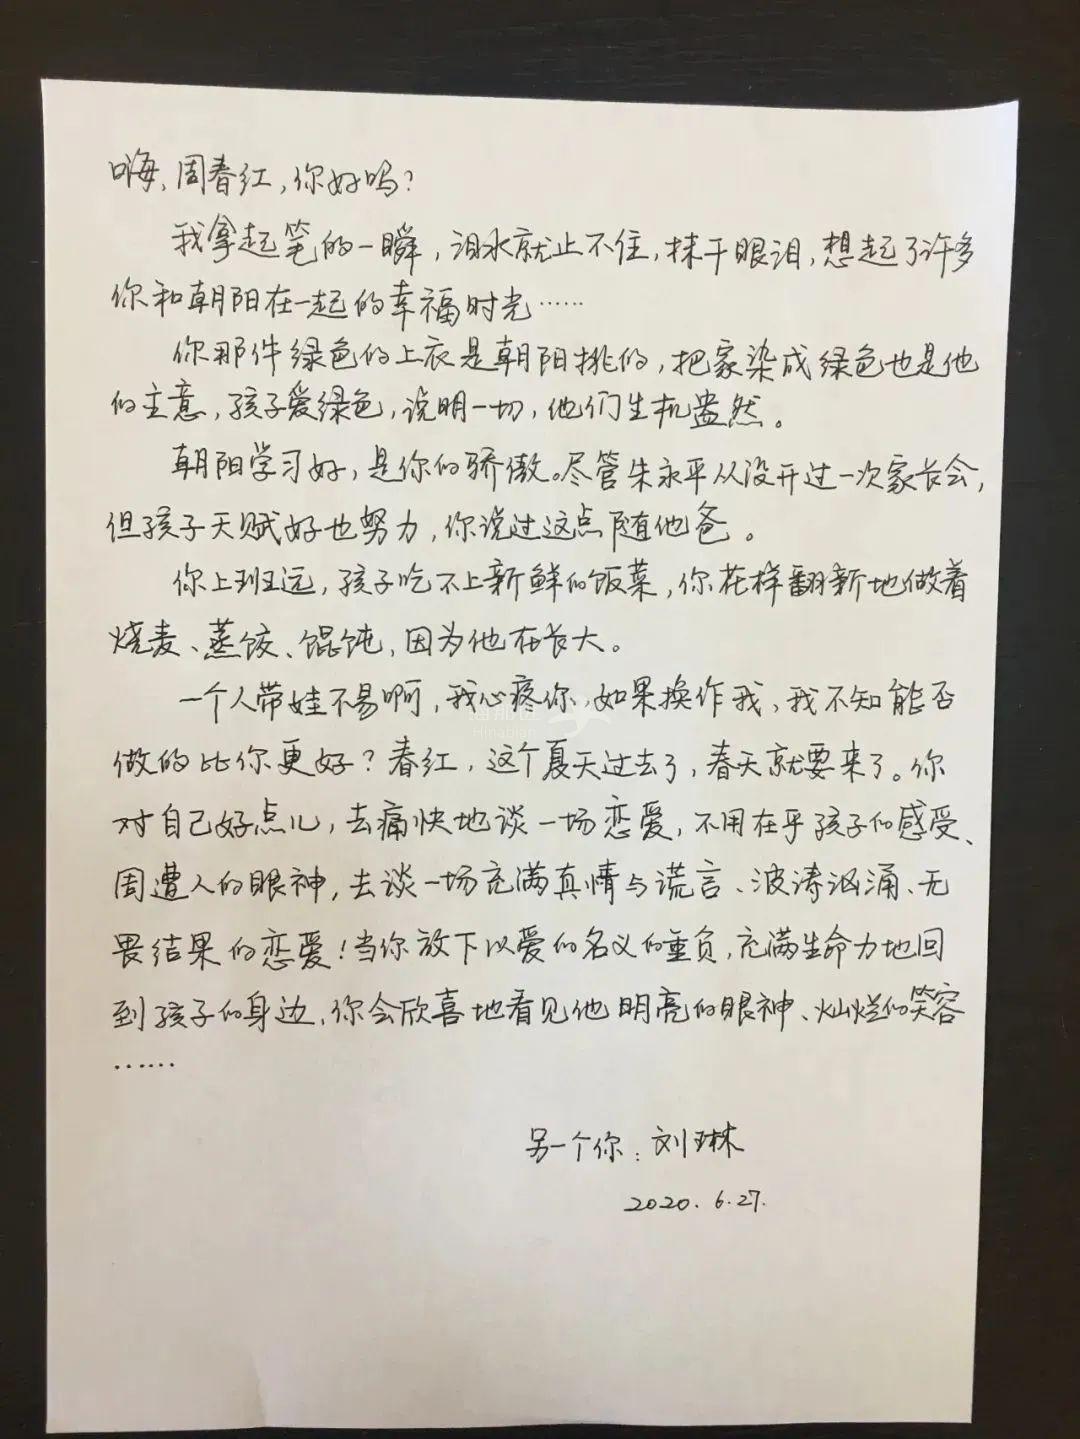 嗨,周春红,你好吗?
我拿起笔的一瞬,泪水就止不住,抹干眼泪,想起了许多
你和朝阳在一起的幸福时光……
你那件绿色的上衣是朝阳挑的,把家染成绿色也是他
的主意,孩子爱绿色,说明一切,他们生机盎然。
朝阳学习好,是你的骄傲。尽管朱永平从没开过一次家长会,
但孩子天赋好也努力,你说过这点随他爸。
你上班远,孩子吃不上新鲜的饭菜,你花样翻新地做着
烧麦、蒸饺、馄饨,因为他在长大。
一个人带娃不易啊,我心疼你,如果换作我,我不知能否
做的比你更好?春红,这个夏天过去了,春天就要来了。你
对自己好点儿,去痛快地谈一场恋爱,不用在乎孩子的感受、
周遭人的眼神,去谈一场充满真情与谎言、波涛汹涌、无
畏结果的恋爱!当你放下以爱的名义的重负,充满生命力地回
到孩子的身边,你会欣喜地看见他明亮的眼神、灿烂的笑容
……
另一个你:刘琳
2020.6.27.
Hinabian